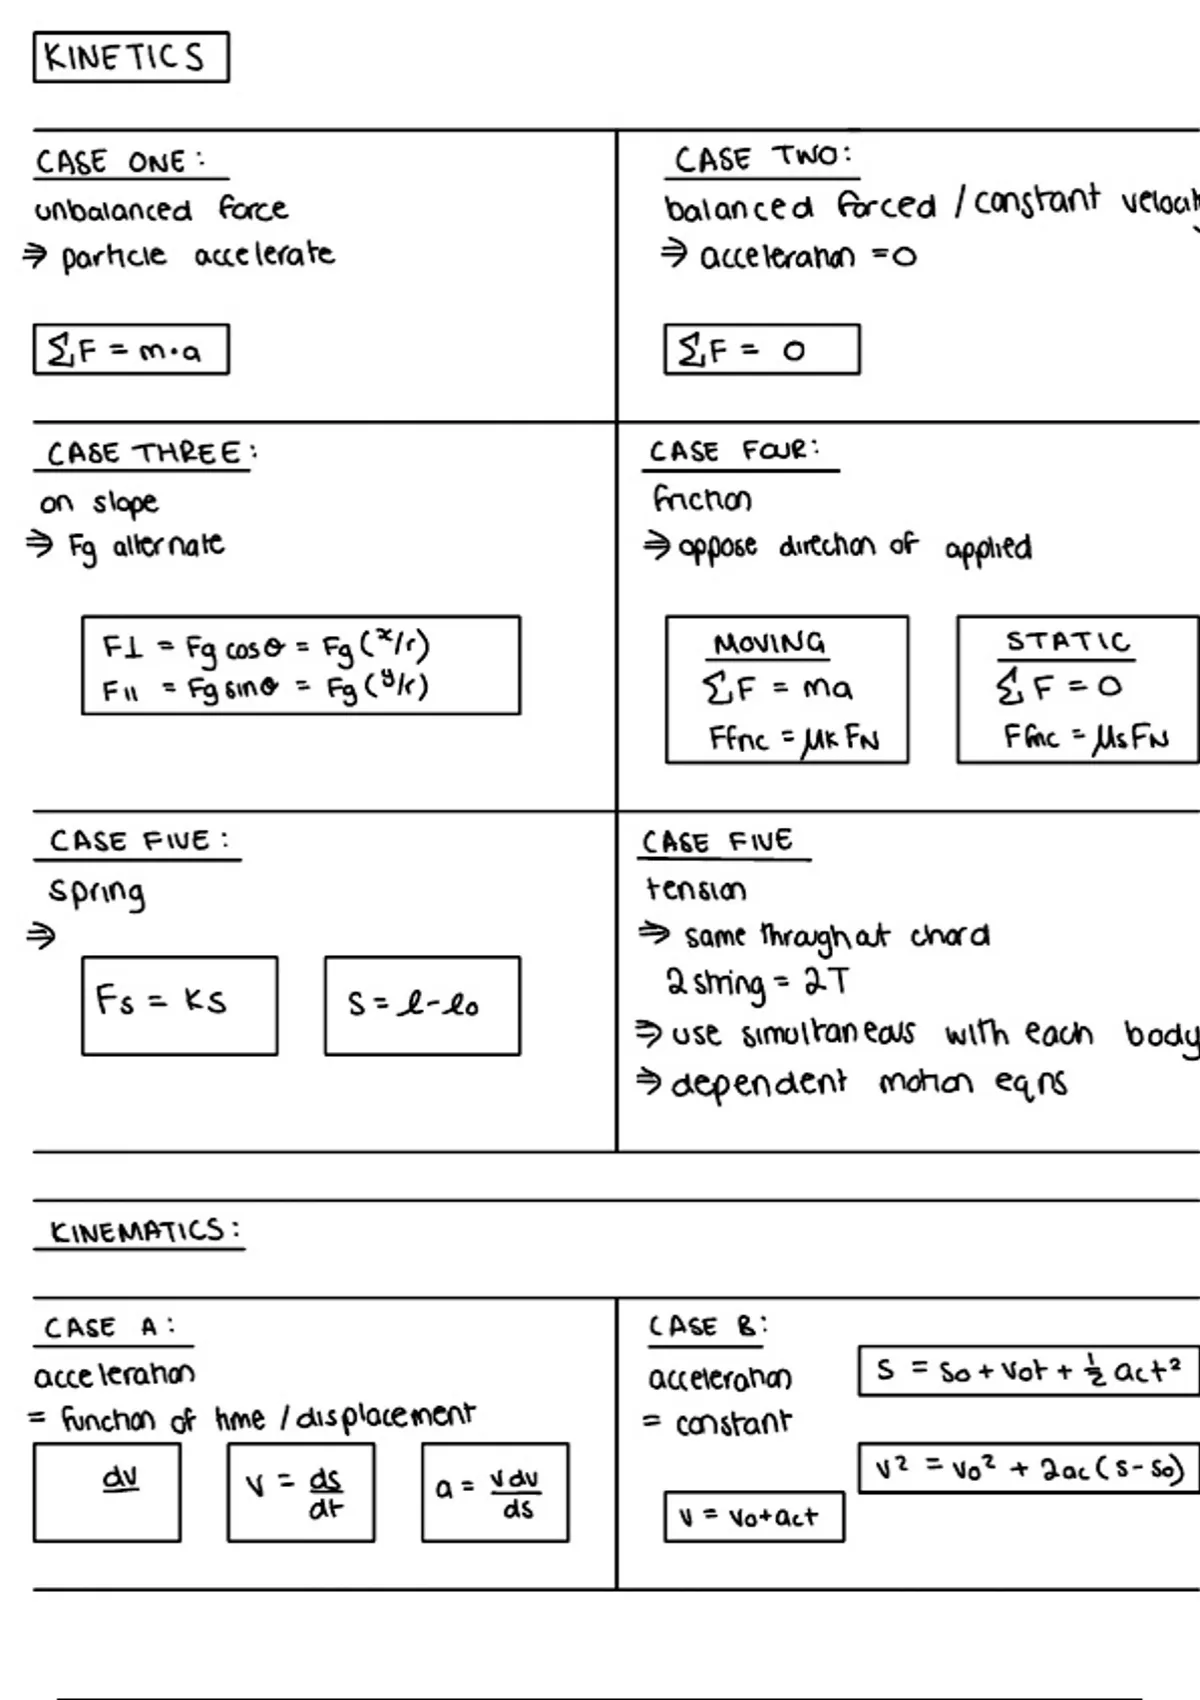 KINETICS
CASE ONE:
unbalanced force
⇒ particle accelerate
ΣF = m·a
CASE TWO:
balanced forced / constant
⇒ acceleration = 0
ΣF = 0
CASE THREE:
on slope
⇒ Fg alternate
F⊥ = Fg cosθ = Fg (x/r)
F∥ = Fg sinθ = Fg (y/r)
CASE FOUR:
friction
⇒ oppose direction of applied
MOVING
ΣF = ma
Ffric = μk FN
STATIC
ΣF = 0
Ffric = μs FN
CASE FIVE:
spring
⇒
Fs = ks
s = l - l₀
CASE FIVE
tension
⇒ same throughout chord
2 string = 2T
⇒ use simultaneous with each body
⇒ dependent motion eqns
KINEMATICS:
CASE A:
acceleration
= function of time / displacement
dv
v = ds/dt
a = vdv/ds
CASE B:
acceleration
= constant
s = s₀ + v₀t + ½ act²
v² = v₀² + 2ac (s - s₀)
v = v₀ + act